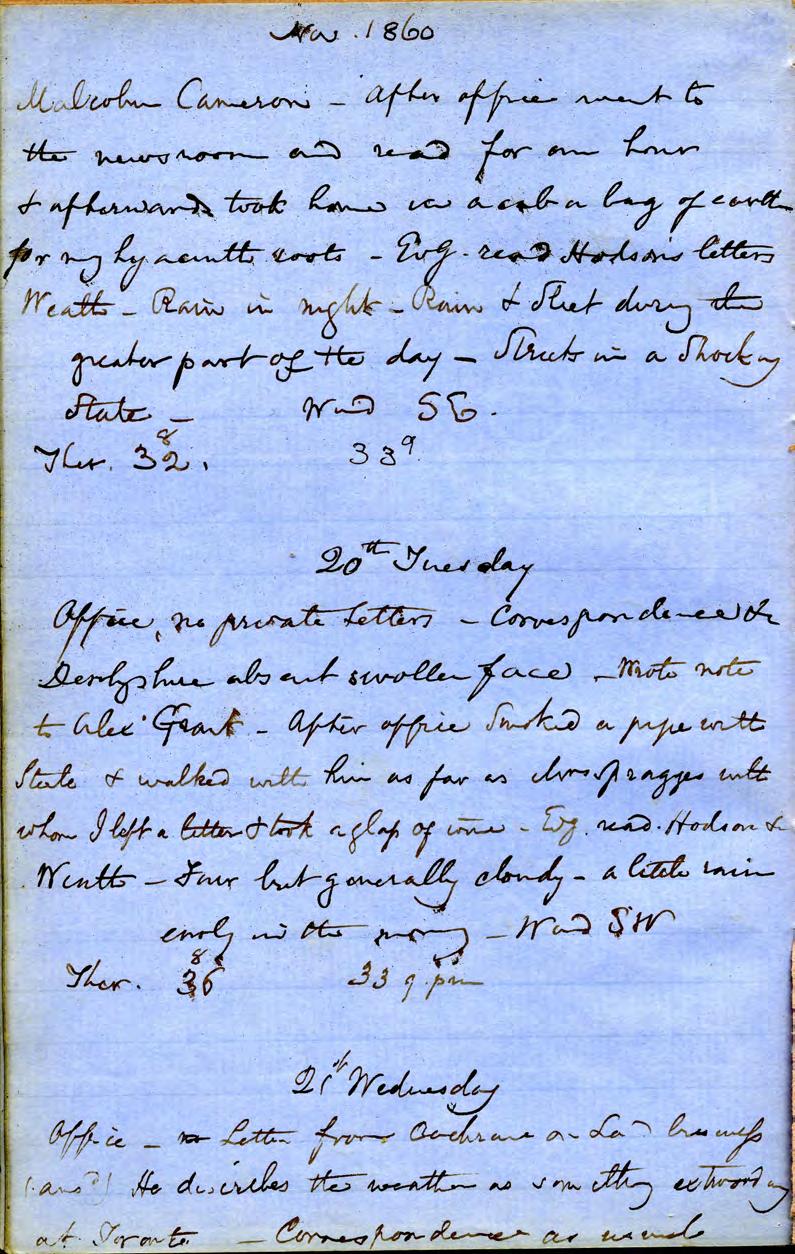 Nov. 1860
Malcolm Cameron – After office went to
the newsroom and read for an hour
& afterwards took home in a cab a bag of earth
for my hyacinth roots – Evg. read Hodson's letters
Weath – Rain in night – Rain & Sleet during the
greater part of the day – Streets in a Shocking
State – Wind SE.
Ther. 32 8. 33 9
20th Tuesday
Office, no private Letters – Correspondence &c
Derbyshire absent swollen face – Wrote note
to Alex Grant – After office Smoked a pipe with
Steele & walked with him as far as Spragges with
whom I left a letter & took a glass of wine – Evg. read Hodson &c
Weath – Fair but generally cloudy – a little rain
early in the morng – Wind SW
Ther. 36 8 33 9 pm
21st Wednesday
Office – Letter from Cochrane on Ld business
(ansd) He describes the weather as something extraordy
at Toronto – Correspondence as usual